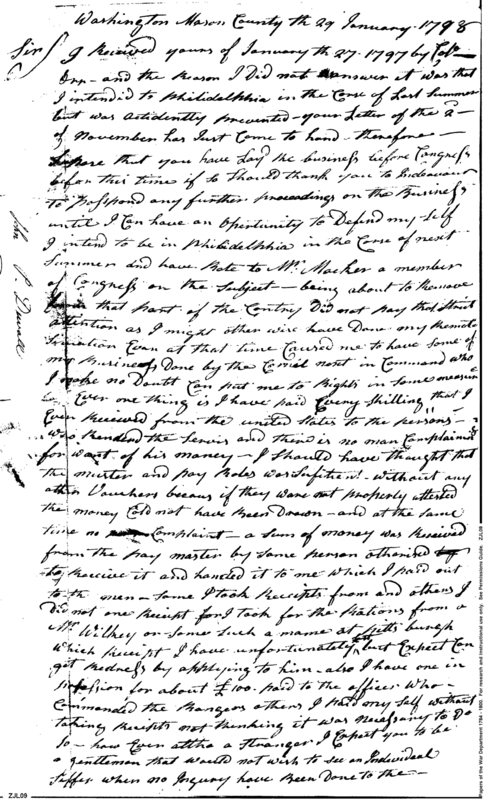 Washington Mason County th 29 January. 1798
Sir
I Received yours of January th 27. 1797 by Colo
Orr - and the Reason I Did not answer it was that
I intendid to Philidelphia in the Corse of Last Summer
but was actidently prevented - your Letter of the 2
of November has Just Come to hand - therefore -
that you have Lay the business before Congress
befor this time if so Should thank you to Indeavour
to Posspond any further proceedings on the Business
until I Can have an Opertunity to Defend my Self
I intend to be in Philidelphia in the Corse of next
Summer and have Rote to Mr. a member
of Congress on the Subject - being about to Remove
that part of the Contry Did not pay that Strict
attention as I might other wise have Done my Remote
Situation Even at that time Caused me to have Some of
my Business Done by the next in Command who
I make no Doubt Can put me to Rights in Some measure
Ever one thing is I have paid Every Shilling that I
Ever Received from the united States to the persons
who Rendred the Servis and there is no man Complains
for want of his money - I Should have thought that
the muster and pay Roles was Sufitient without any
other Vouchers becaus if they ware not properly attested
the money Cold not have Been Drawn - and at the Same
time no Complaint - a Sum of money was Received
from the pay master by Some person
to Receive it and handed it to me which I paid out
to the men - Some I took Receipts from and others I
Did not one Receipt I took for the Rations from a
Mr. Wilkey or Some Such a name at pitts burgh
which Receipt I have unfortunately but Expect Can
get Redress by applying to him - also I have one in
for about £100. paid to the officer who -
Commanded the Rangers others I Paid my Self without
taking Receipts not thinking it was necessary to Do
So - how Ever altho a Stranger I Expect you to be
a gentleman that would not wish to See an Individeal
Suffer when no Inquiry have Been Done to the -
John P. Duvall
ZJL09
Papers of the War Department 1784 - 1800. For research and instructional use only. See Permissions Guide. ZJL09